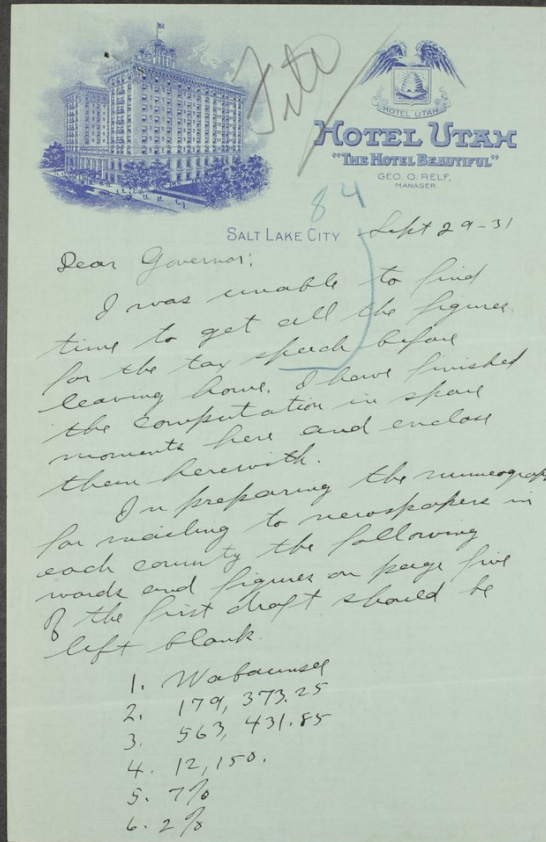 File
HOTEL UTAH
HOTEL UTAH
"THE HOTEL BEAUTIFUL"
GEO. O. RELF,
MANAGER
84
SALT LAKE CITY Sept 29-31
Dear Governor:
I was unable to find
time to get all the figures
for the tax speech before
leaving home. I have finished
the computation in spare
moments here and enclose
them herewith.
In preparing the mimeograph
for mailing to newspapers in
each county the following
words and figures on page five
of the first draft should be
left blank.
1. Wabaunsee
2. 179,373.25
3. 563,431.85
4. 12,150.
5. 7%
6. 2%